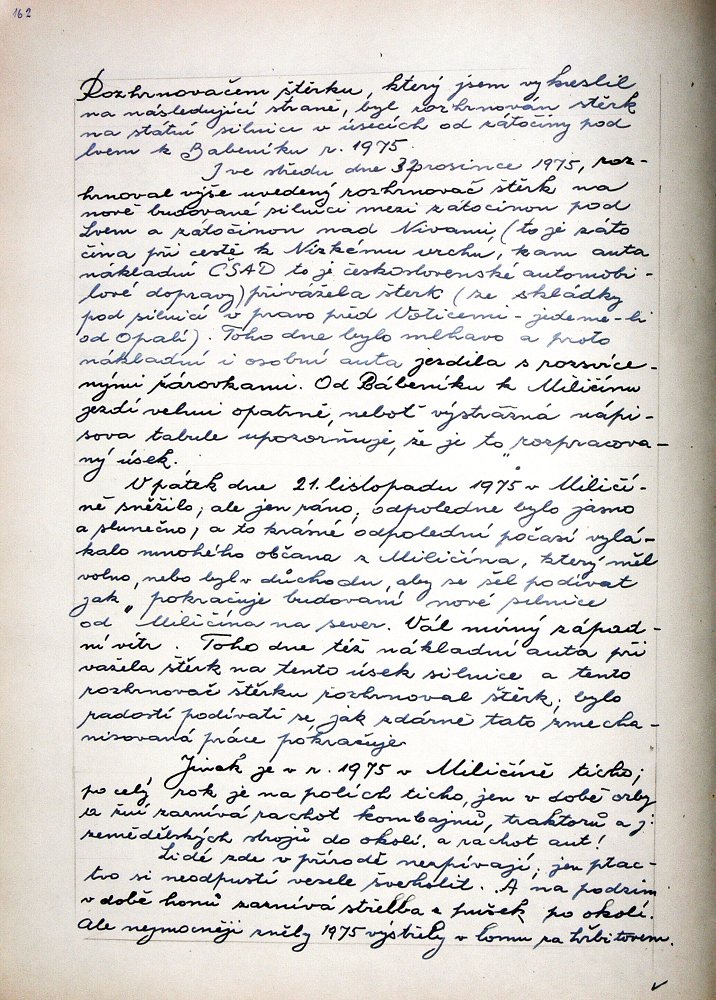 162
Rozhrnovačem štěrku, který jsem vykreslil
na následující straně, byl rozhrnován štěrk
na státní silnice v úsecích od zátočiny pod
lvem k Babeníku r. 1975.
I ve středu dne 3 prosince 1975, roz-
hrnoval výše uvedený rozhrnovač štěrk na
nově budované silnici mezi zátočinou pod
Lvem a zátočinou nad Nivami, (to je záto
čina při cestě k Nízkému vrchu, kam auta
nákladní ČSAD to je československé automobi-
lové dopravy) přivážela štěrk (ze skládky
pod silnicí v pravo před Voticemi - jedeme-li
od Opalí). Toho dne bylo mlhavo a proto
nákladní i osobní auta jezdila s rozsvíce-
nými žárovkami. Od Bábeníku k Miličínu
jezdí velmi opatrně, neboť výstražná nápi-
sova tabule upozorňuje, že je to „rozpracova-
ný úsek.
V pátek dne 21. listopadu 1975 v Miličí-
ně sněžilo; ale jen ráno; odpoledne bylo jasno
a slunečno; a to krásné odpolední počasí vylá-
kalo mnohého občana z Miličína, který měl
volno, nebo byl v důchodu, aby se šel podívat
jak „ pokračuje budovaní nové silnice
od Miličína na sever. Vál mírný západ-
ní vítr. Toho dne též nákladní auta při
vážela štěrk na tento úsek silnice a tento
rozhrnovač štěrku rozhrnoval štěrk; bylo
radostí podívati se, jak zdárně tato zmecha-
nisovaná práce pokračuje.
Jinak je v r. 1975 v Miličíně ticho;
po celý rok je na polích ticho, jen v době orby
a žní zaznívá rachot kombajnů, traktorů a j.
zemědělských strojů do okolí. a rachot aut!
Lidé zde v přírodě nezpívají; jen ptac-
tvo si neodpustí vesele švehôlit. A na podzim
v době honů zaznívá střelba z pušek po okolí.
Ale nejmocněji zněly 1975 výstřely v lomu za hřbitovem.